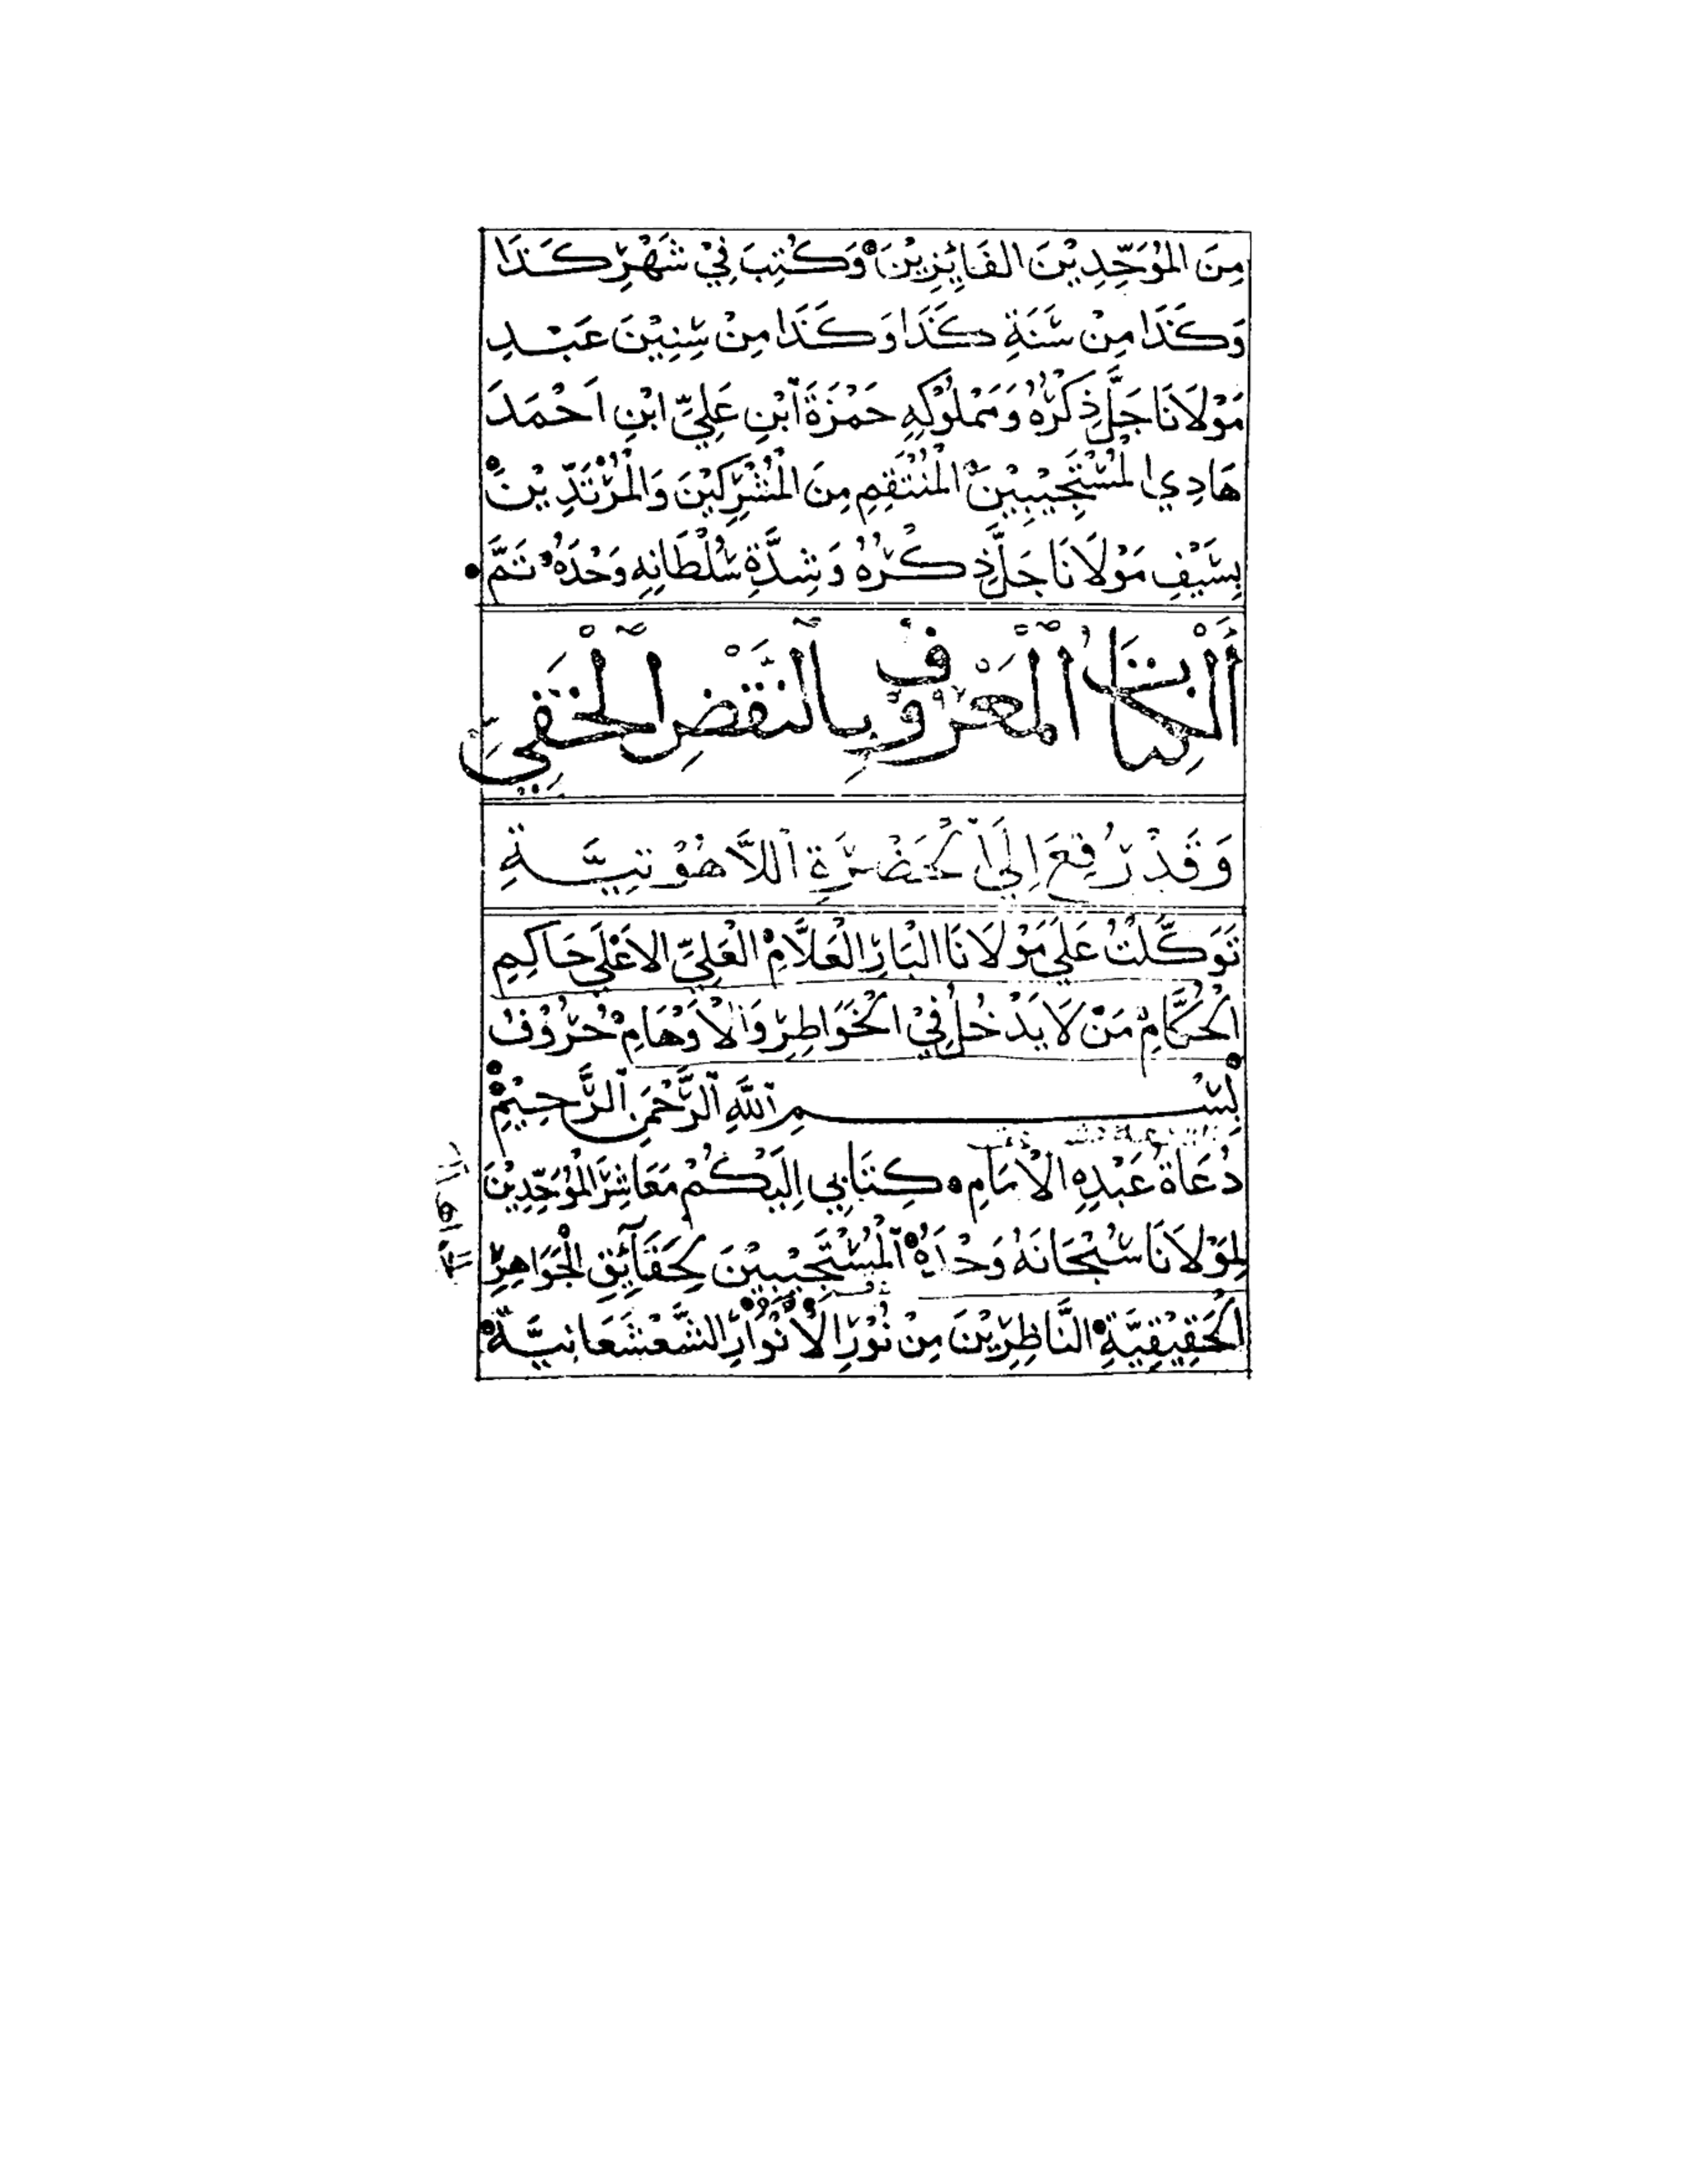 مِنَ الْمُوَحِّدِيْنَ الفَايِزِيْنَ وَكُتِبَ فِيْ شَهْرِ كَذَا
وَكَذَا مِنْ سَنَةِ كَذَا وَكَذَا مِنْ سِنِيْنَ عَبْدِ
مَوْلَانَا جَلَّ ذِكْرُهُ وَمَمْلُوْكِهِ حَمْزَةَ ابْنِ عَلِيِّ ابْنِ اَحْمَدَ
هَادِي الْمُسْتَجِيْبِيْنَ الْمُنْتَقِمِ مِنَ الْمُشْرِكِيْنَ وَالْمُرْتَدِّيْنَ
بِسَيْفِ مَوْلَانَا جَلَّ ذِكْرُهُ وَشِدَّةِ سُلْطَانِهِ وَحْدَهُ تَمَّ
أَلْكِتَابُ الْمَعْرُوْفُ بِالنَّقْضِ الْخَفِيِّ
وَقَدْ رُفِعَ اِلَى الْحَضْرَةِ اللَّاهُوْتِيَّةِ
تَوَكَّلْتُ عَلَى مَوْلَانَا الْبَارِ الْعَلَّامِ الْعَلِيِّ الاَعْلَى حَاكِمِ
الْحُكَّامِ مَنْ لَا يَدْخُلُ فِيْ الْخَوَاطِرِ وَالْاَوْهَامِ حُرُوْفُ
بِسْمِ اللهِ الرَّحْمَنِ الرَّحِيْمِ
دُعَاةُ عَبْدِهِ الْاِمَامِ كِتَابِي اِلَيْكُمْ مَعَاشِرَ الْمُوَحِّدِيْنَ
لِمَوْلَانَا سُبْحَانَهُ وَحْدَهُ الْمُسْتَجِيْبِيْنَ لِحَقَآئِقِ الْجَوَاهِرِ
الْحَقِيْقِيَّةِ النَّاظِرِيْنَ مِنْ نُوْرِ الْاَنْوَارِ الشَّعْشَعَانِيَّةِ